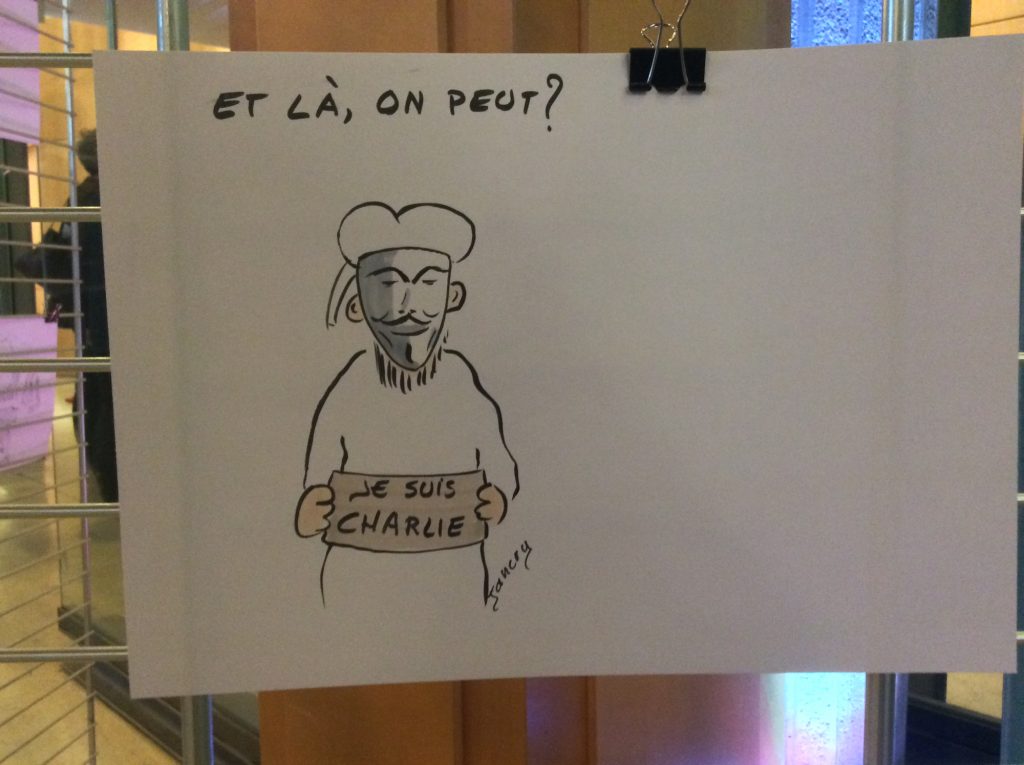 ET LÀ, ON PEUT?
JE SUIS
CHARLIE